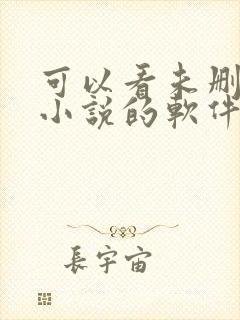 可以看未删
小說的軟件
長宇宙